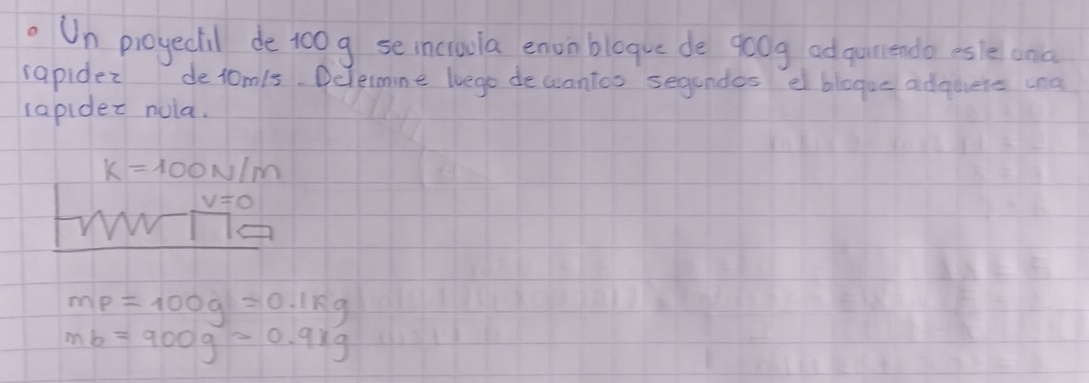 Un proyectil de 100g se incrusta en un bloque de 900g adquiriendo este una
rapidez de 10m/s. Determine luego de cuantos segundos el bloque adquiere una
rapidez nula.
K=100N/m
v=0
mp=100g=0.1Kg
mb=900g=0.9Kg